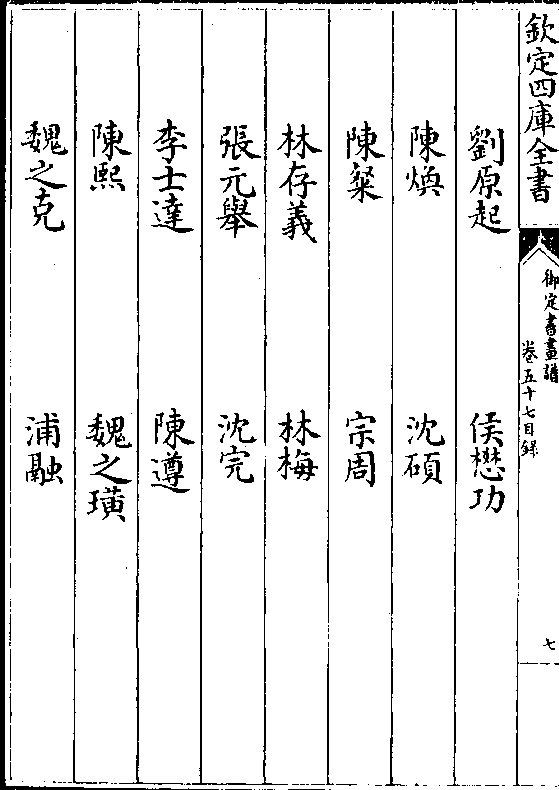 欽定四庫全書
御定書畫譜
卷五十七目錄
七
劉原起　侯懋功
陳煥　沈碩
陳粲　宗周
林存義　林梅
張元舉　沈完
李士達　陳遵
陳熙　魏之璜
魏之克　浦融